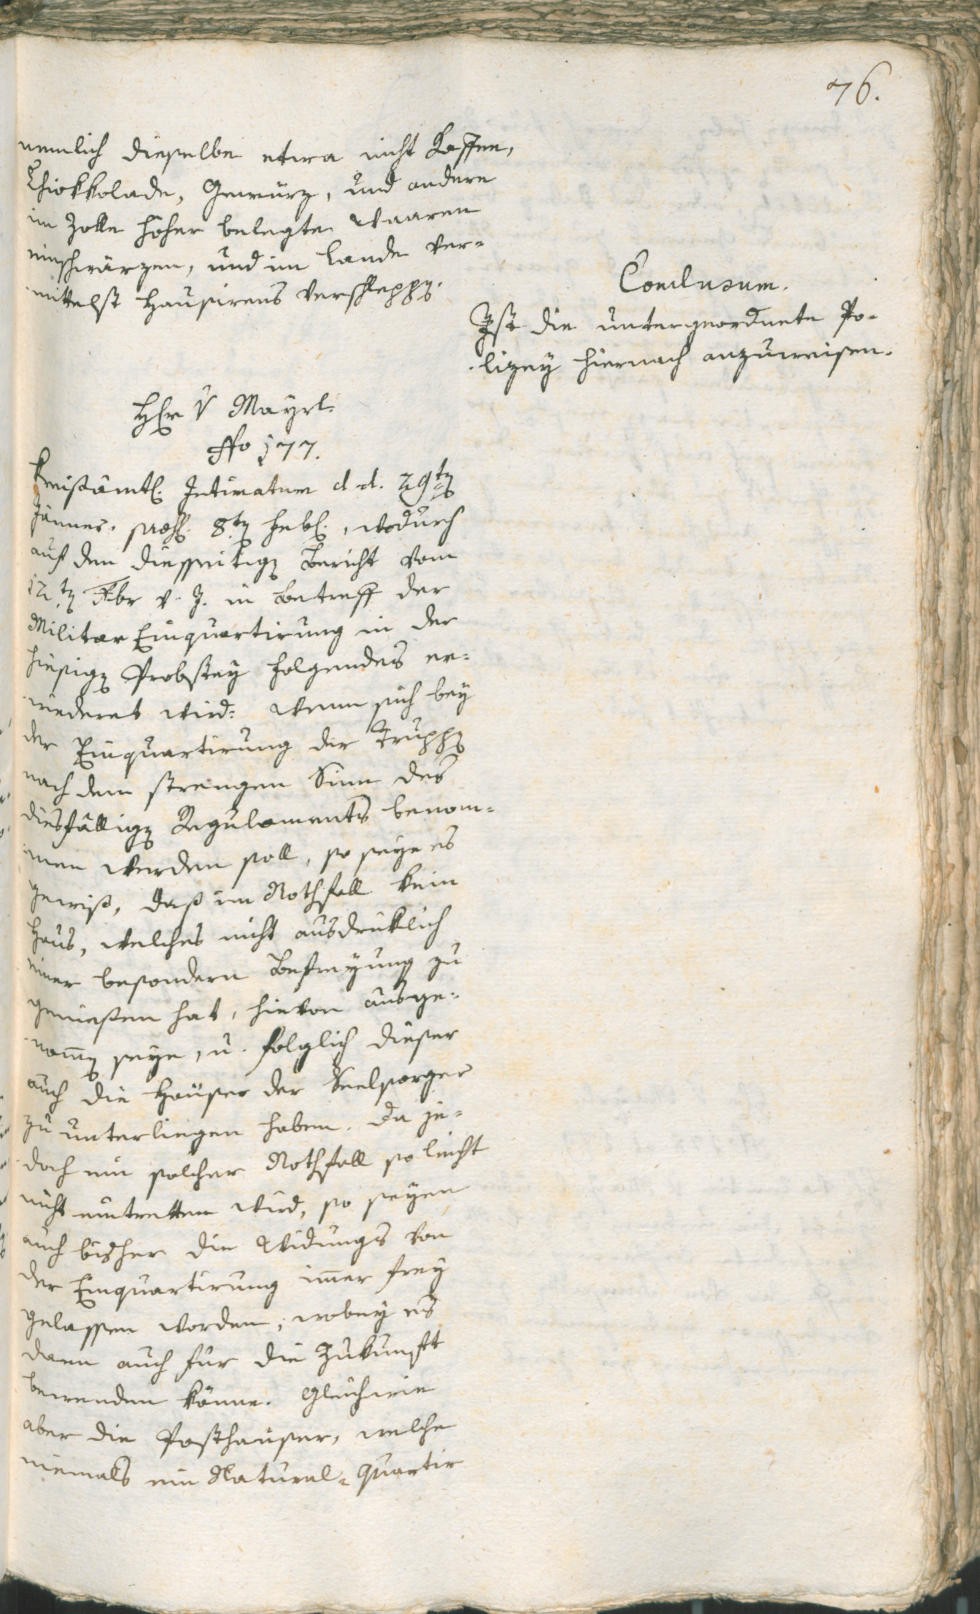 76.
nemlich dieselbe etwa nicht Kaffee,
Chiokkolade, Gewürz, und andere
im Zolle höher belegte Waaren
einschwärzen, und im Lande ver-
mittelst Hausirens verschleppen.
Conclusum.
Ist die untergeordnete Po-
lizey hiernach anzuweisen.
H[er]r v Mayrl.
Nro 177.
Kreisämtl. Intimatum d. d. 29ten
Jänner, 8ten Febr., wodurch
auf den diesseitigen Bericht vom
12ten Xbr v. J. in Betreff der
Militar Einquartirung in der
hiesigen Probstey folgendes er-
niederet wird: Wenn sich bey
der Einquartirung der Truppen
nach dem strengen Sinn des
diesfälligen Regulaments benom-
men werden soll, so seye es
gewiß, daß im Nothfall kein
Haus, welches nicht ausdrüklich
einer besondern Befreyung zu
geniessen hat, hievon ausge-
nommen seye, u. folglich dieser
auch die Häuser der Seelsorger
zu unterliegen haben. Da je-
doch ein solcher Nothfall so leicht
nicht eintretten wird, so seyen
auch bisher die Widungs von
der Einquartirung immer frey
gelassen worden, wobey es
dann auch für die Zukunft
bewenden könne. Gleichwie
aber die Posthäuser, welche
niemals ein Natural-Quartir